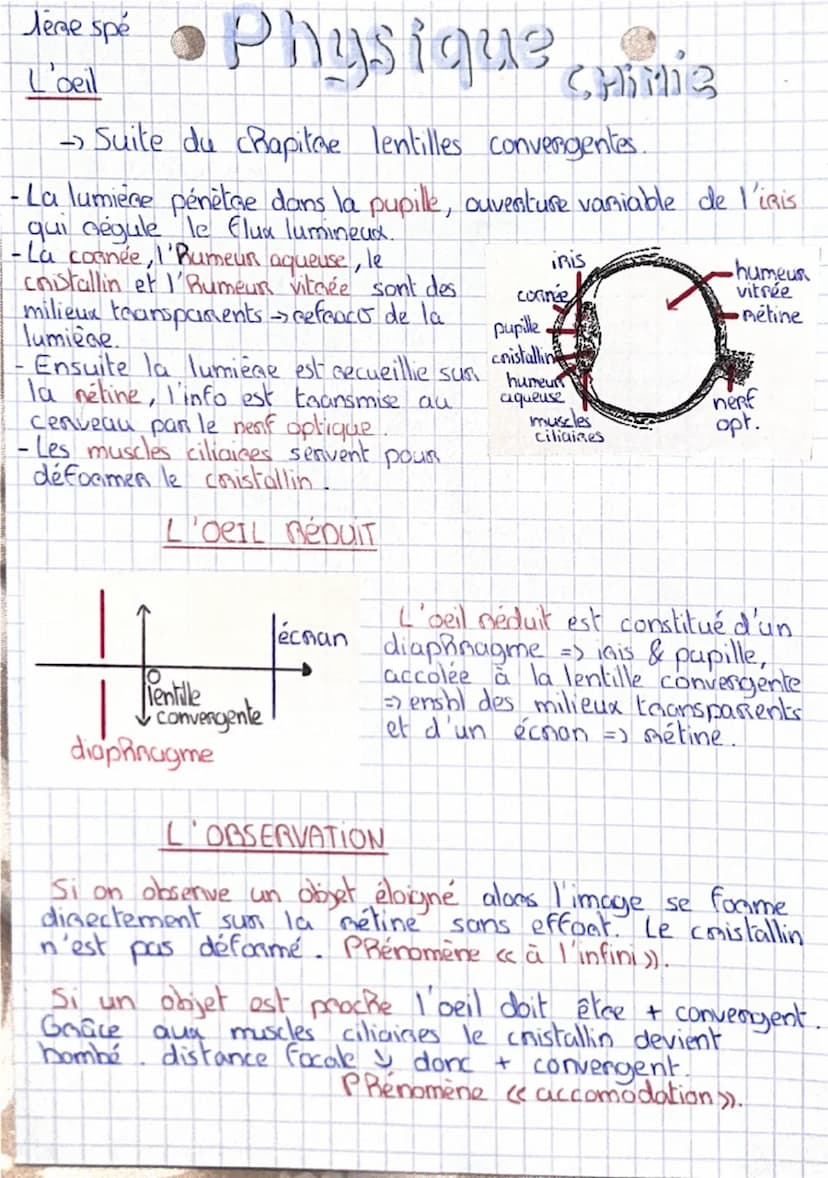 1ère spé
Physique
CHIMIE
L'oeil
→ Suite du chapitre lentilles convergentes.
- La lumière pénètre dans la pupille, ouverture variable de l'iris
qui régule le flux lumineux.
- La cornée, l'humeur aqueuse, le
cristallin et l'humeur vitrée sont des
milieux transparents → refract° de la
lumière.
- Ensuite la lumière est recueillie sur
la rétine, l'info est transmise au
cerveau par le nerf optique.
- Les muscles ciliaires servent pour
déformer le cristallin.
iris
cornée
pupille
cristallin
humeur
aqueuse
muscles
ciliaires
humeur
vitrée
rétine
nerf
opt.
L'OEIL RÉDUIT
écran
O
lentille
convergente
diaphragme
L'oeil réduit est constitué d'un
diaphragme => iris & pupille,
accolée à la lentille convergente
=> ensbl des milieux transparents
et d'un écran => rétine.
L'OBSERVATION
Si on observe un objet éloigné alors l'image se forme
directement sur la rétine sans effort. Le cristallin
n'est pas déformé. Phénomène « à l'infini ».
Si un objet est proche l'oeil doit être + convergent.
Grâce aux muscles ciliaires le cristallin devient
bombé. distance focale ↘ donc + convergent.
Phénomène « accomodation ».